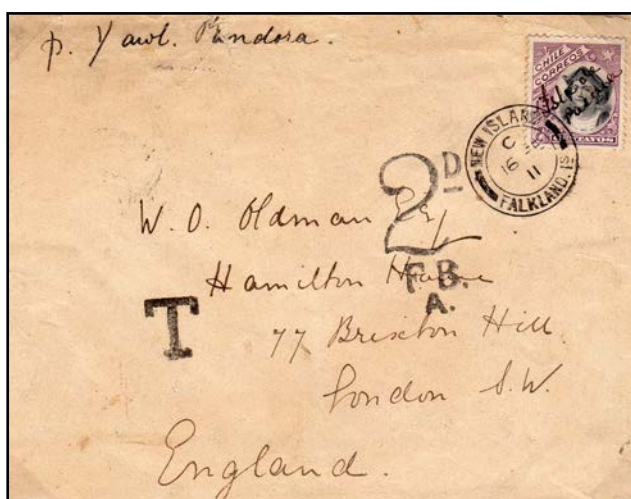 p. Yawl. Pandora.
CHILE
CORREOS
NEW ISLAND
C
16
11
FALKLAND. IS
2D
F.B.
A.
T
W. O. Oldman Esq
Hamilton House
77 Brixton Hill
London S.W.
England.